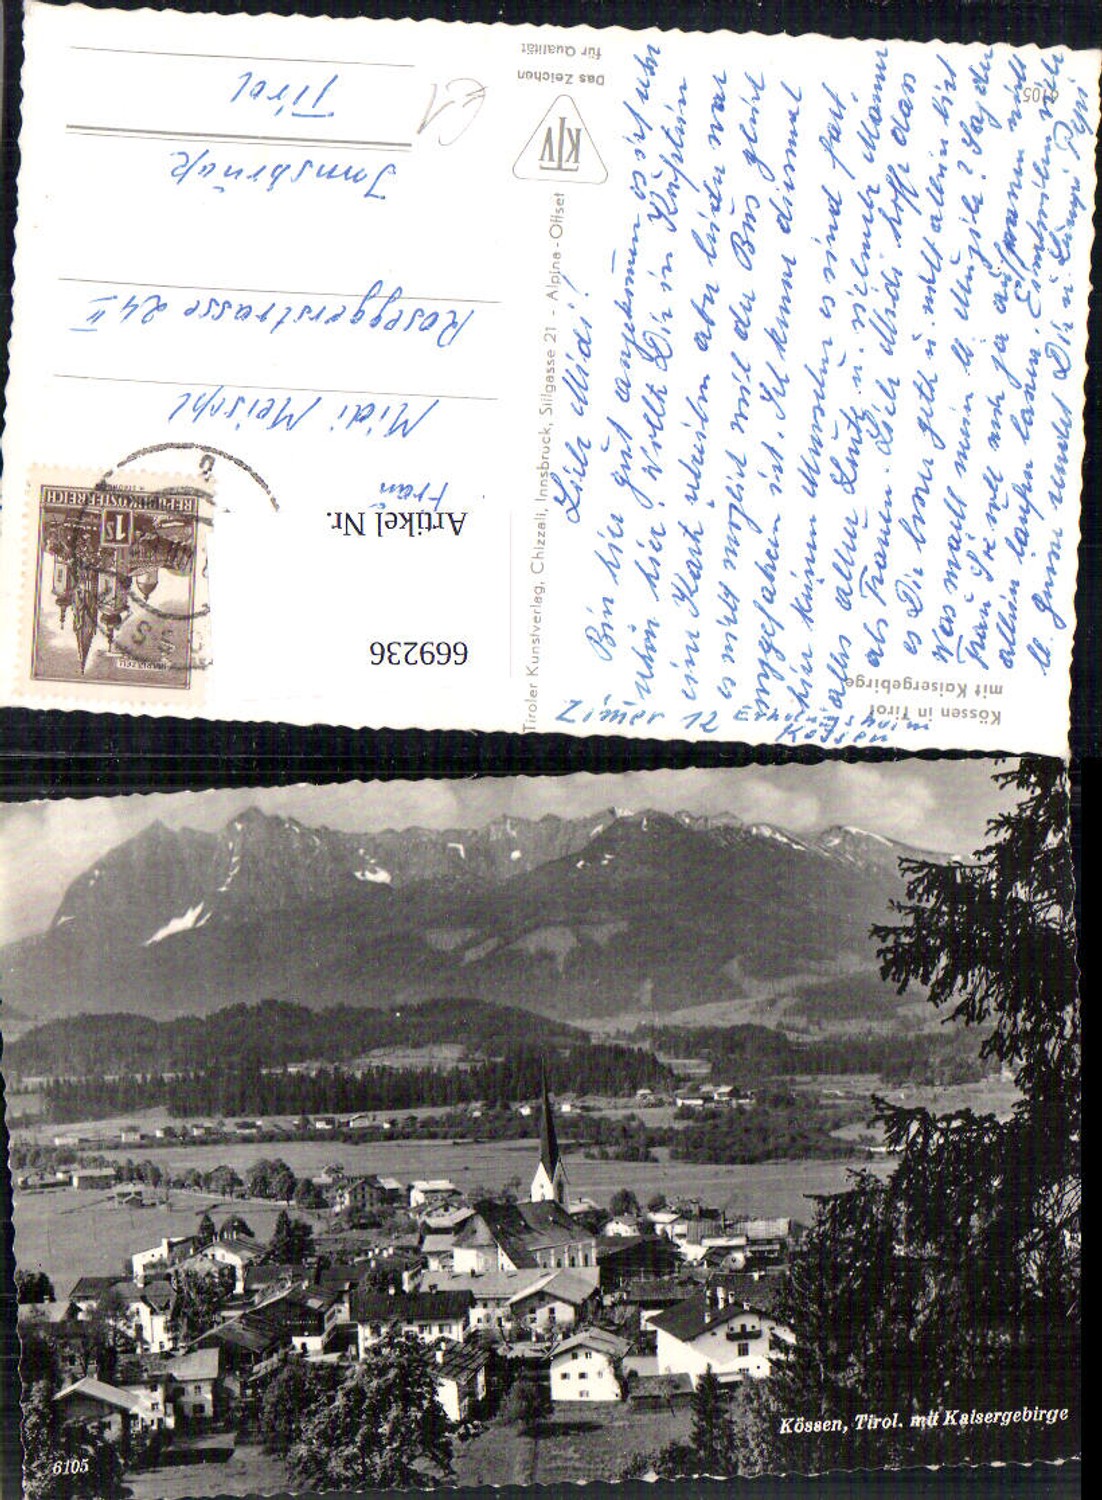 Kössen in Tirol
mit Kaisergebirge
Liebe Midi!
Bin hier gut angekommen es ist sehr
schön hier. Wollte Dir in Kufstein
eine Karte schreiben aber leider war
es nicht möglich weil der Bus gleich
weggefahren ist. Ich kenne diesmal
hier keinen Menschen es sind fast
alles ältere Leute u. vielmehr Männer
als Frauen. Liebe Midi hoffe dass
es Dir besser geht u. nicht allein bist
Was macht mein lb.
allein laufen lassen. Einstweilen viele
lb. Grüsse sendet Dir u.
Zimmer 12 Erholungsheim
Kössen
6105
Das Zeichen
für Qualität
KTV
Tiroler Kunstverlag, Chizzali, Innsbruck, Sillgasse 21 - Alpina-Offset
REPUBLIK ÖSTERREICH
1 S
MARIAZELL
669236
Artikel Nr.
Frau
Midi Meischl
Roseggerstrasse 24 II
Innsbruck
Tirol
€1
Kössen, Tirol. mit Kaisergebirge
6105